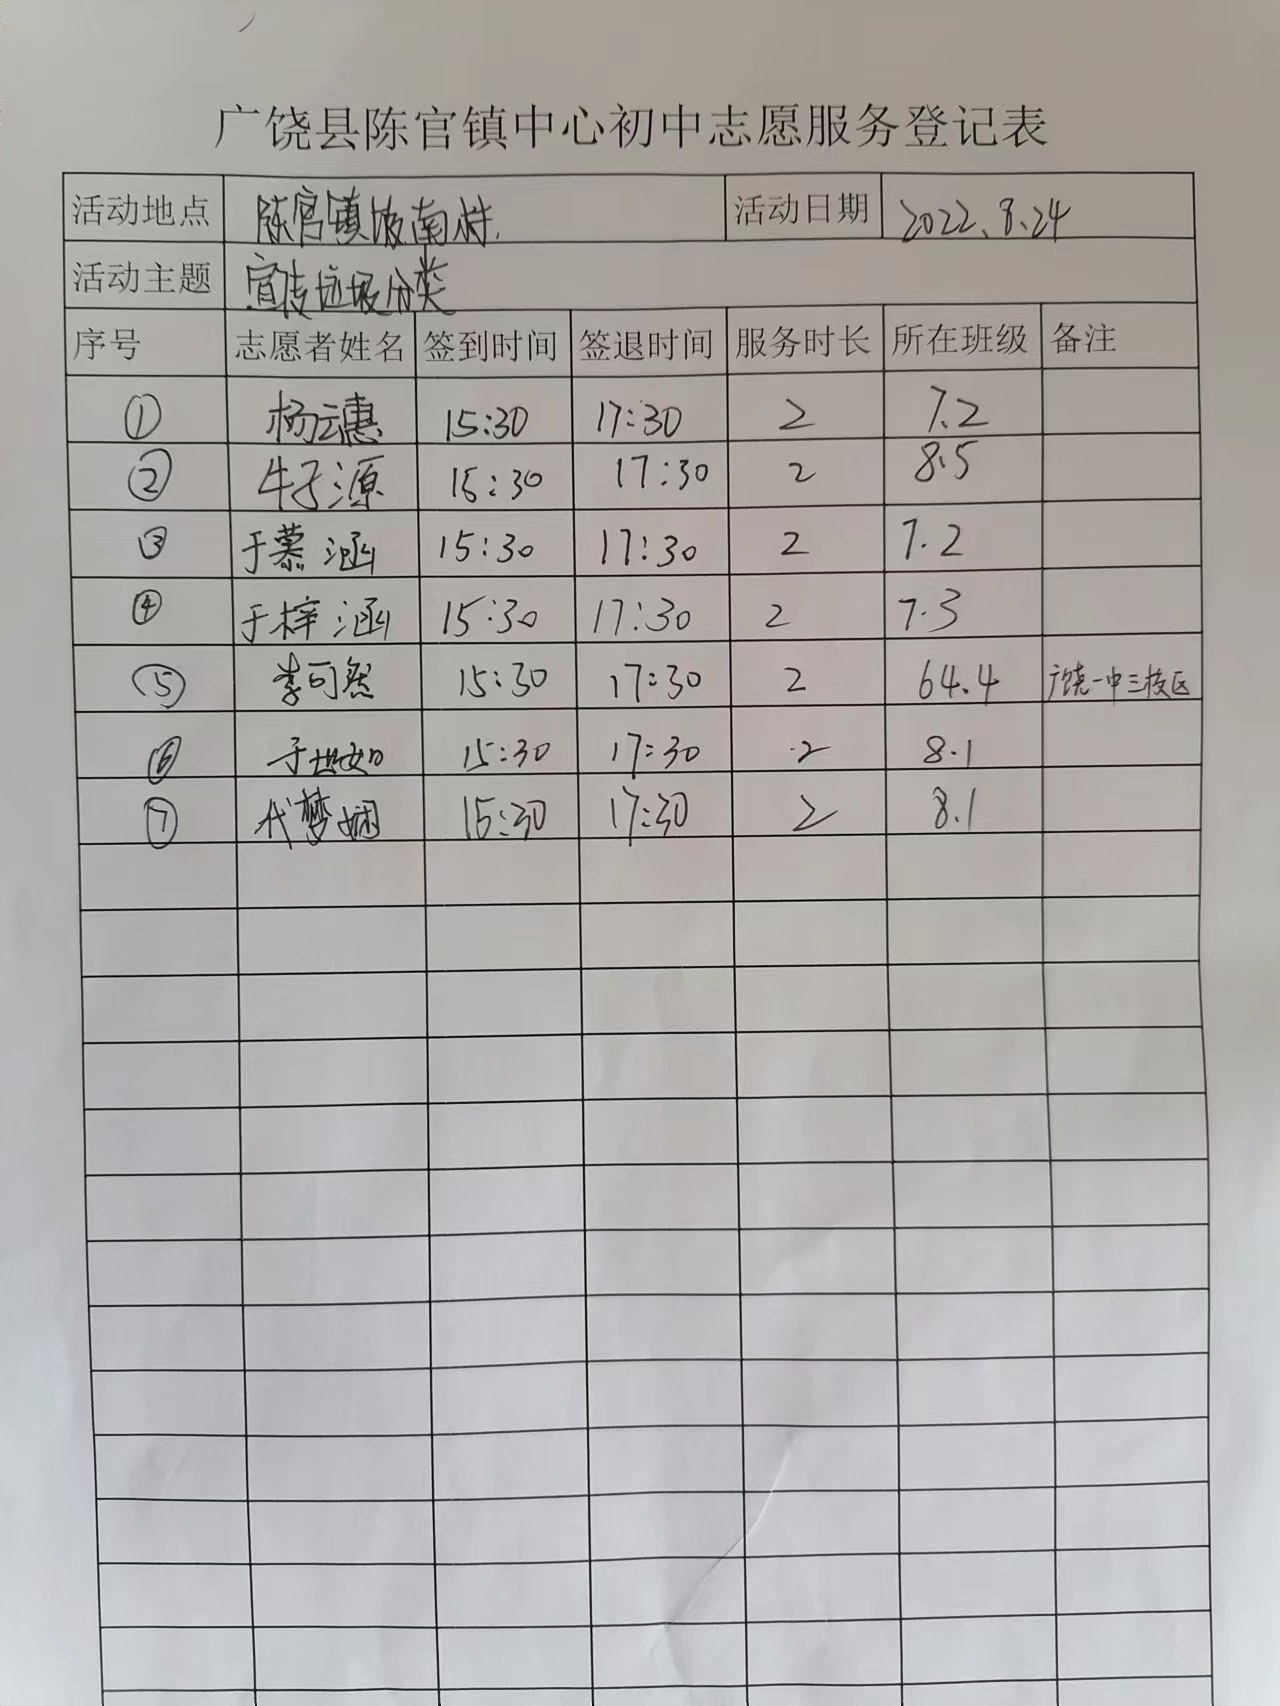 广饶县陈官镇中心初中志愿服务登记表
活动地点 陈官镇坡南村 活动日期 2022.8.24
活动主题 宣传垃圾分类
序号 志愿者姓名 签到时间 签退时间 服务时长 所在班级 备注
① 杨云惠 15:30 17:30 2 7.2
② 牛子源 15:30 17:30 2 8.5
③ 于慕涵 15:30 17:30 2 7.2
④ 于梓涵 15:30 17:30 2 7.3
⑤ 李可然 15:30 17:30 2 64.4 广饶一中三校区
⑥ 于世如 15:30 17:30 2 8.1
⑦ 代梦娴 15:30 17:30 2 8.1